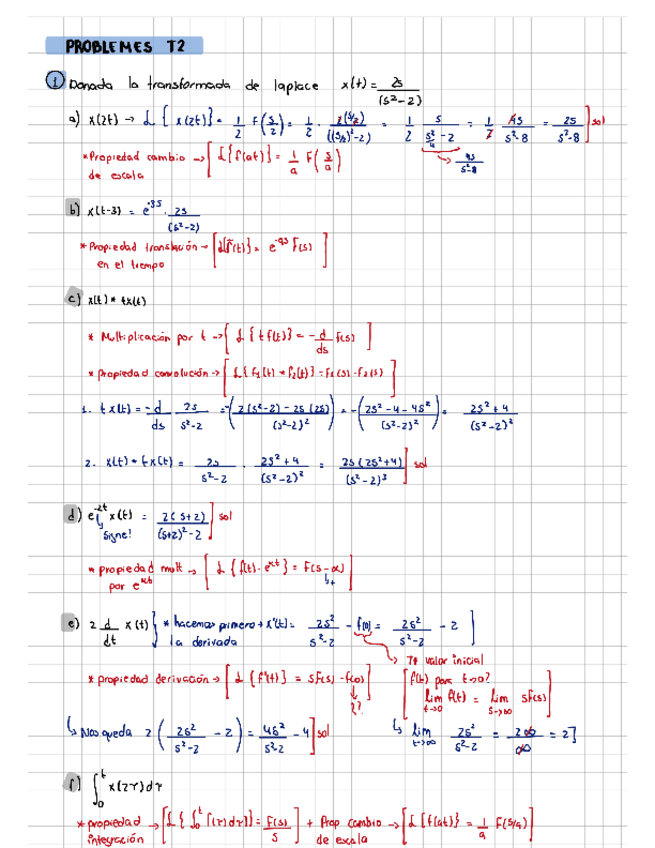 PROBLEMES T2
① Donada la transformada de laplace x(t) = 2s/(s²-2)
a) x(2t) → L{x(2t)} = 1/2 F(s/2) = 1/2 · 2(s/2)/((s/2)²-2) = 1/2 s/(s²/4 - 2) = 1/2 4s/(s²-8) = 2s/(s²-8)] sol
4s/(s²-8)
*Propiedad cambio → [L{f(at)} = 1/a F(s/a)]
de escala
b) x(t-3) = e^-3s · 2s/(s²-2)
* Propiedad translación → [L{f(t)} = e^-as F(s)]
en el tiempo
c) x(t) * tx(t)
* Multiplicación por t → [L{t f(t)} = -d/ds F(s)]
* propiedad convolución → [L{f₁(t) * f₂(t)} = F₁(s)·F₂(s)]
1. t x(t) = -d/ds 2s/(s²-2) = -(2(s²-2) - 2s(2s)/(s²-2)²) = -(2s²-4-4s²/(s²-2)²) = 2s²+4/(s²-2)²
2. x(t) * t x(t) = 2s/(s²-2) · 2s²+4/(s²-2)² = 2s(2s²+4)/(s²-2)³] sol
d) e^-2t x(t) = 2(s+2)/((s+2)²-2)] sol
↳ signe!
* propiedad mult → [L{f(t)·e^αt} = F(s-α)]
por e^αt ↳+
e) 2 d/dt x(t)} * hacemos primero → x'(t) = 2s²/(s²-2) - f(0) = 2s²/(s²-2) - 2]
la derivada
→ T⁺ valor inicial
* propiedad derivación → [L{f'(t)} = sF(s) - f(0)]
↓ 2?
[f(t) para t→0?
lim t→0 f(t) = lim s→∞ sF(s)]
↳ Nos queda 2(2s²/(s²-2) - 2) = 4s²/(s²-2) - 4] sol
↳ lim t→∞ 2s²/(s²-2) = 2∞/∞ = 2]
f) ∫₀ᵗ x(2τ)dτ
* propiedad → [L{∫₀ᵗ f(τ)dτ} = F(s)/s] + Prop cambio → [L{f(at)} = 1/a F(s/a)]
integración de escala